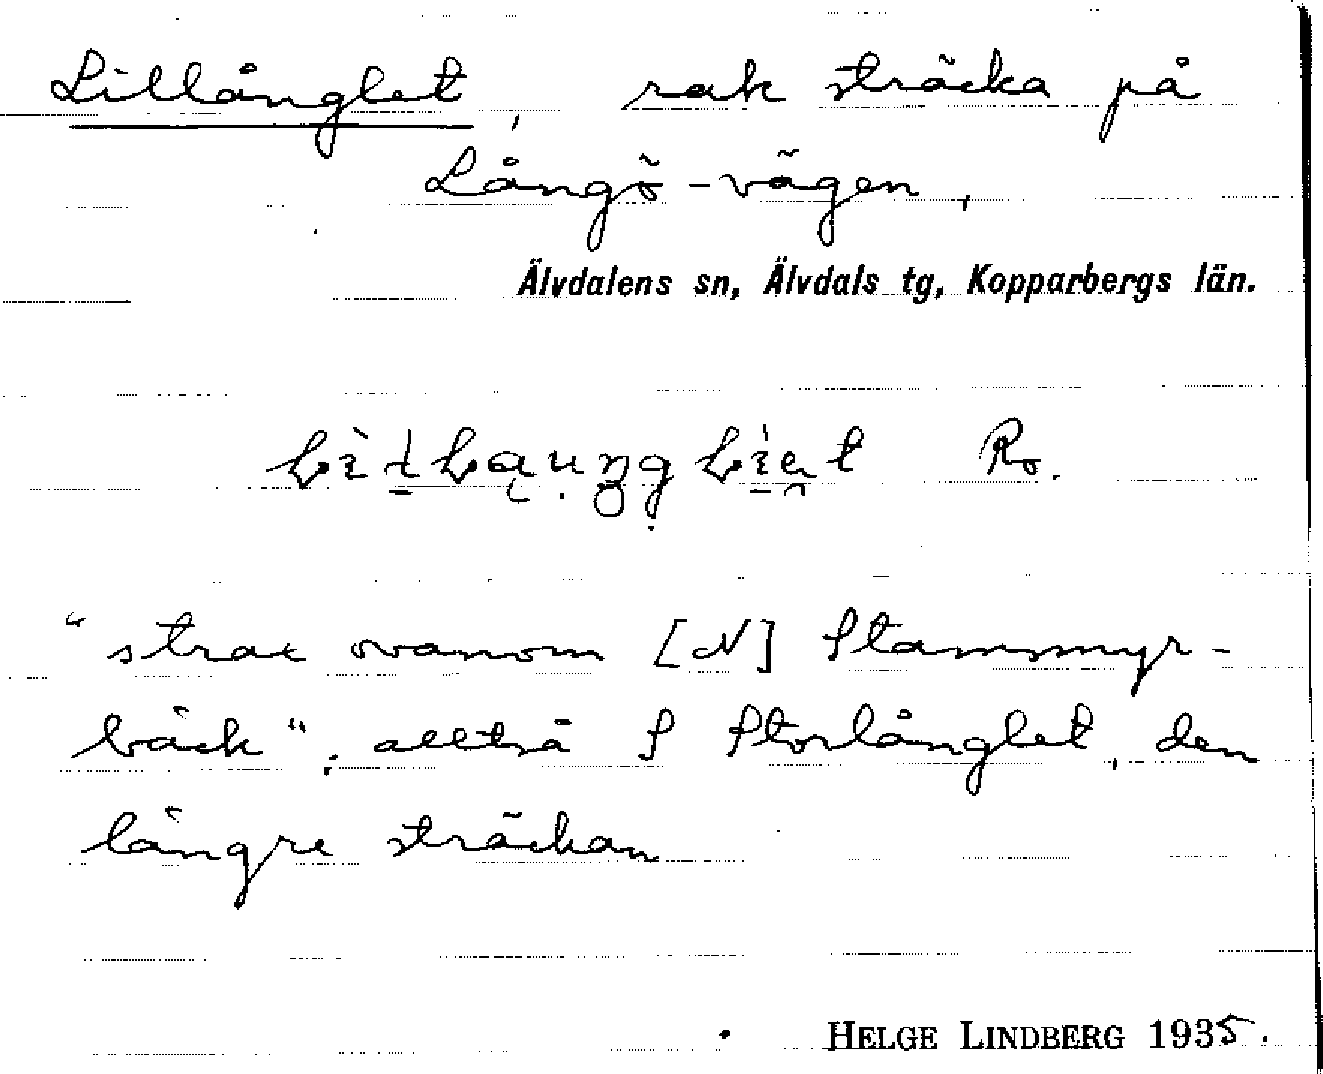 Lillånglet, rak sträcka på
Långö-vägen,
Älvdalens sn, Älvdals tg, Kopparbergs län.
Ro.
"strax ovanom [N] Stammyr-
bäck"; alltså S Storlånglet, den
längre sträckan
HELGE LINDBERG 1935.